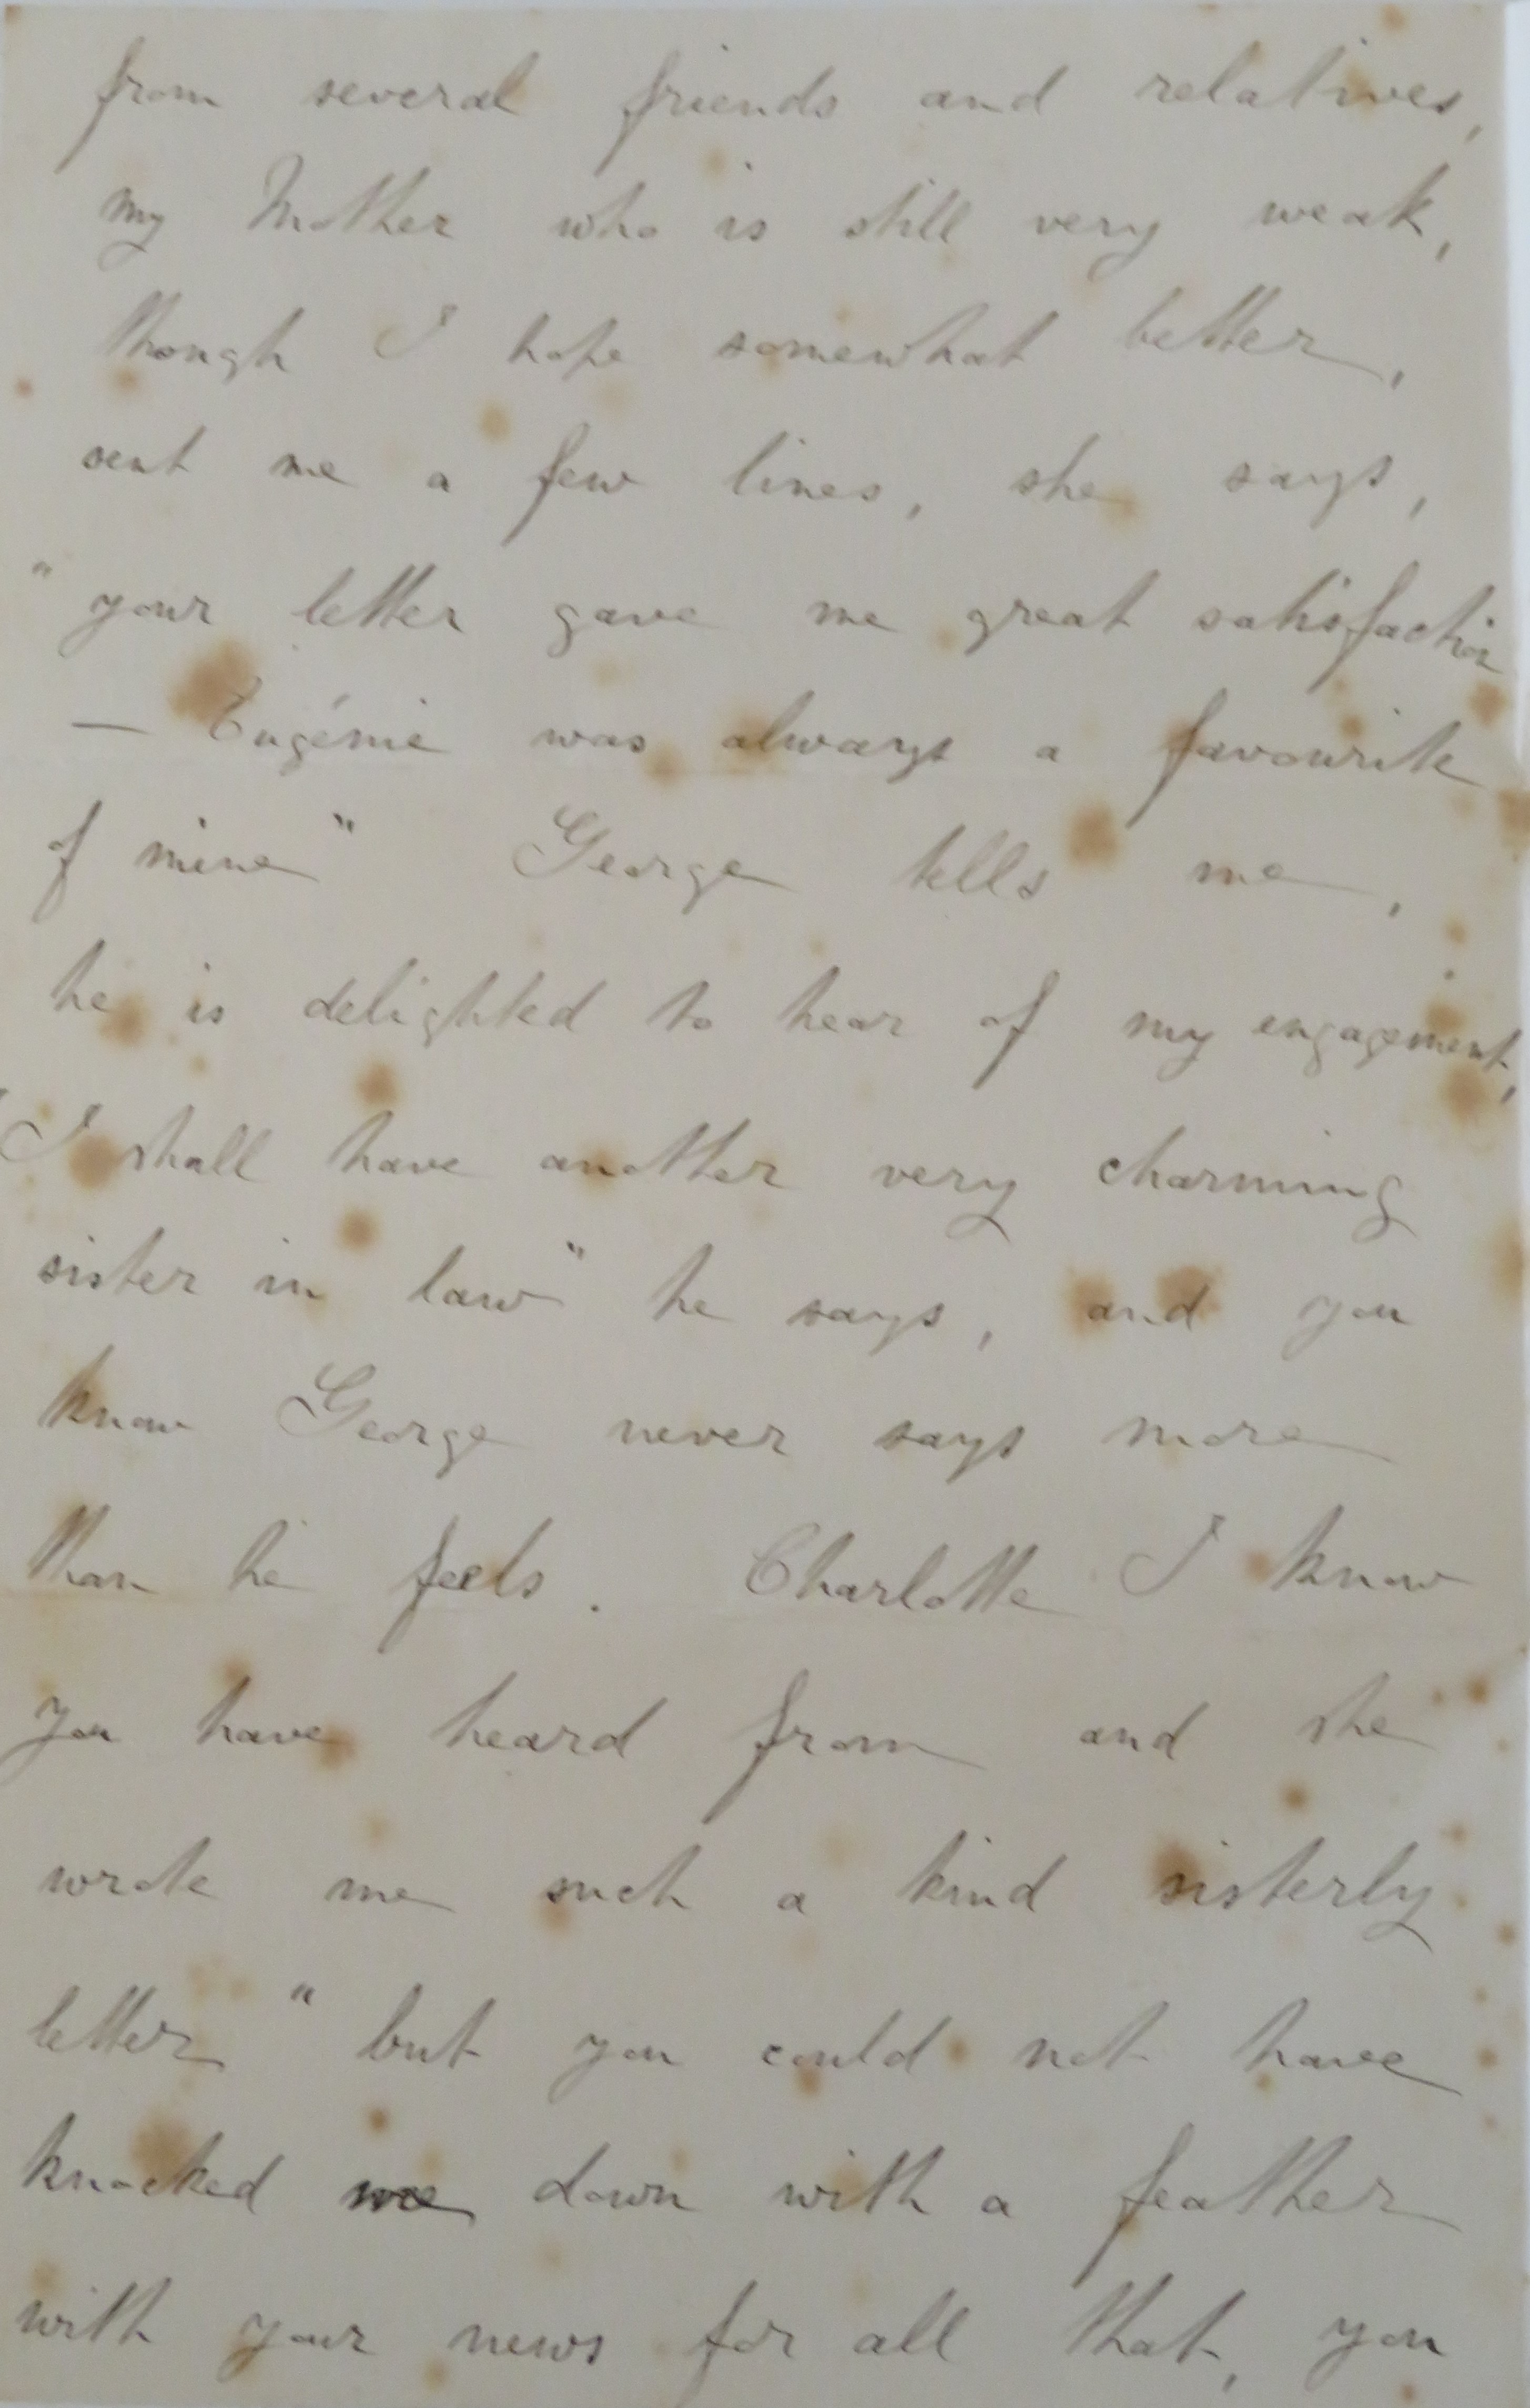 from several friends and relatives,
my Mother who is still very weak,
though I hope somewhat better,
sent me a few lines, she says,
"your letter gave me great satisfaction
— Eugénie was always a favourite
of mine" George tells me,
he is delighted to hear of my engagement,
"I shall have another very charming
sister in law" he says, and you
know George never says more
than he feels. Charlotte I know
you have heard from and she
wrote me such a kind sisterly
letter "but you could not have
knocked me down with a feather
with your news for all that, you